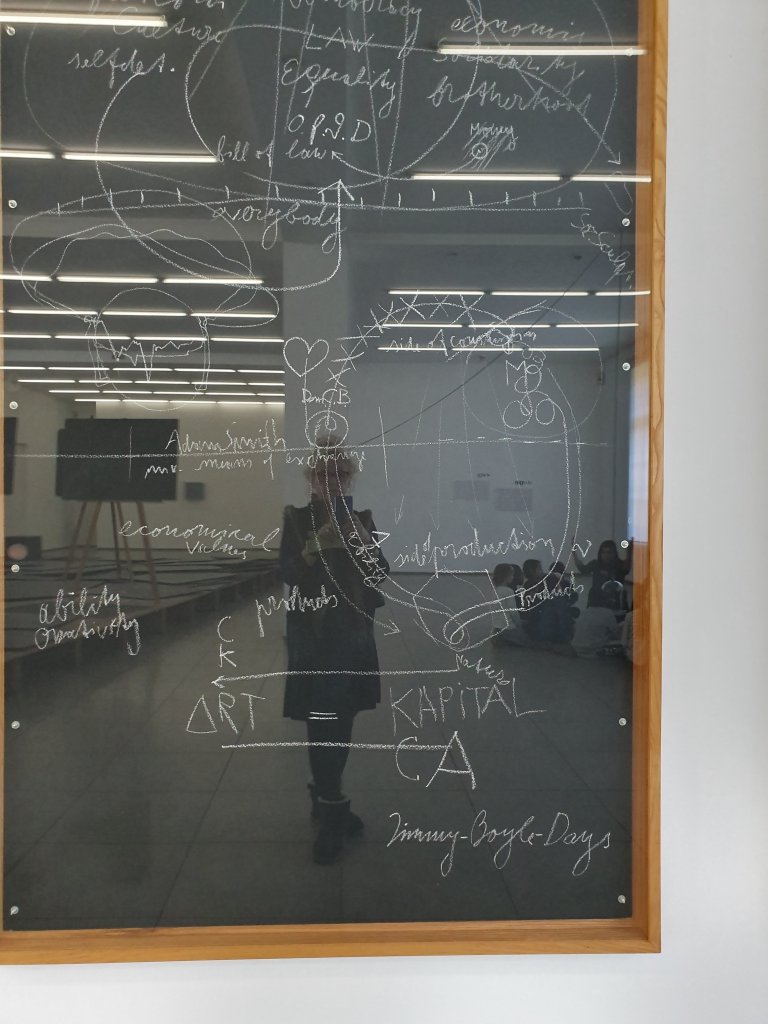 Culture
selfdet.
LAW
Equality
economic
Solidarity
brotherhood
Money
bill of law
everybody
side of consumption
Adam Smith
means of exchange
economical
values
side production
ability
creativity
products
Products
Nature
C
K
ART = KAPITAL
CA
Jimmy-Boyle-Days